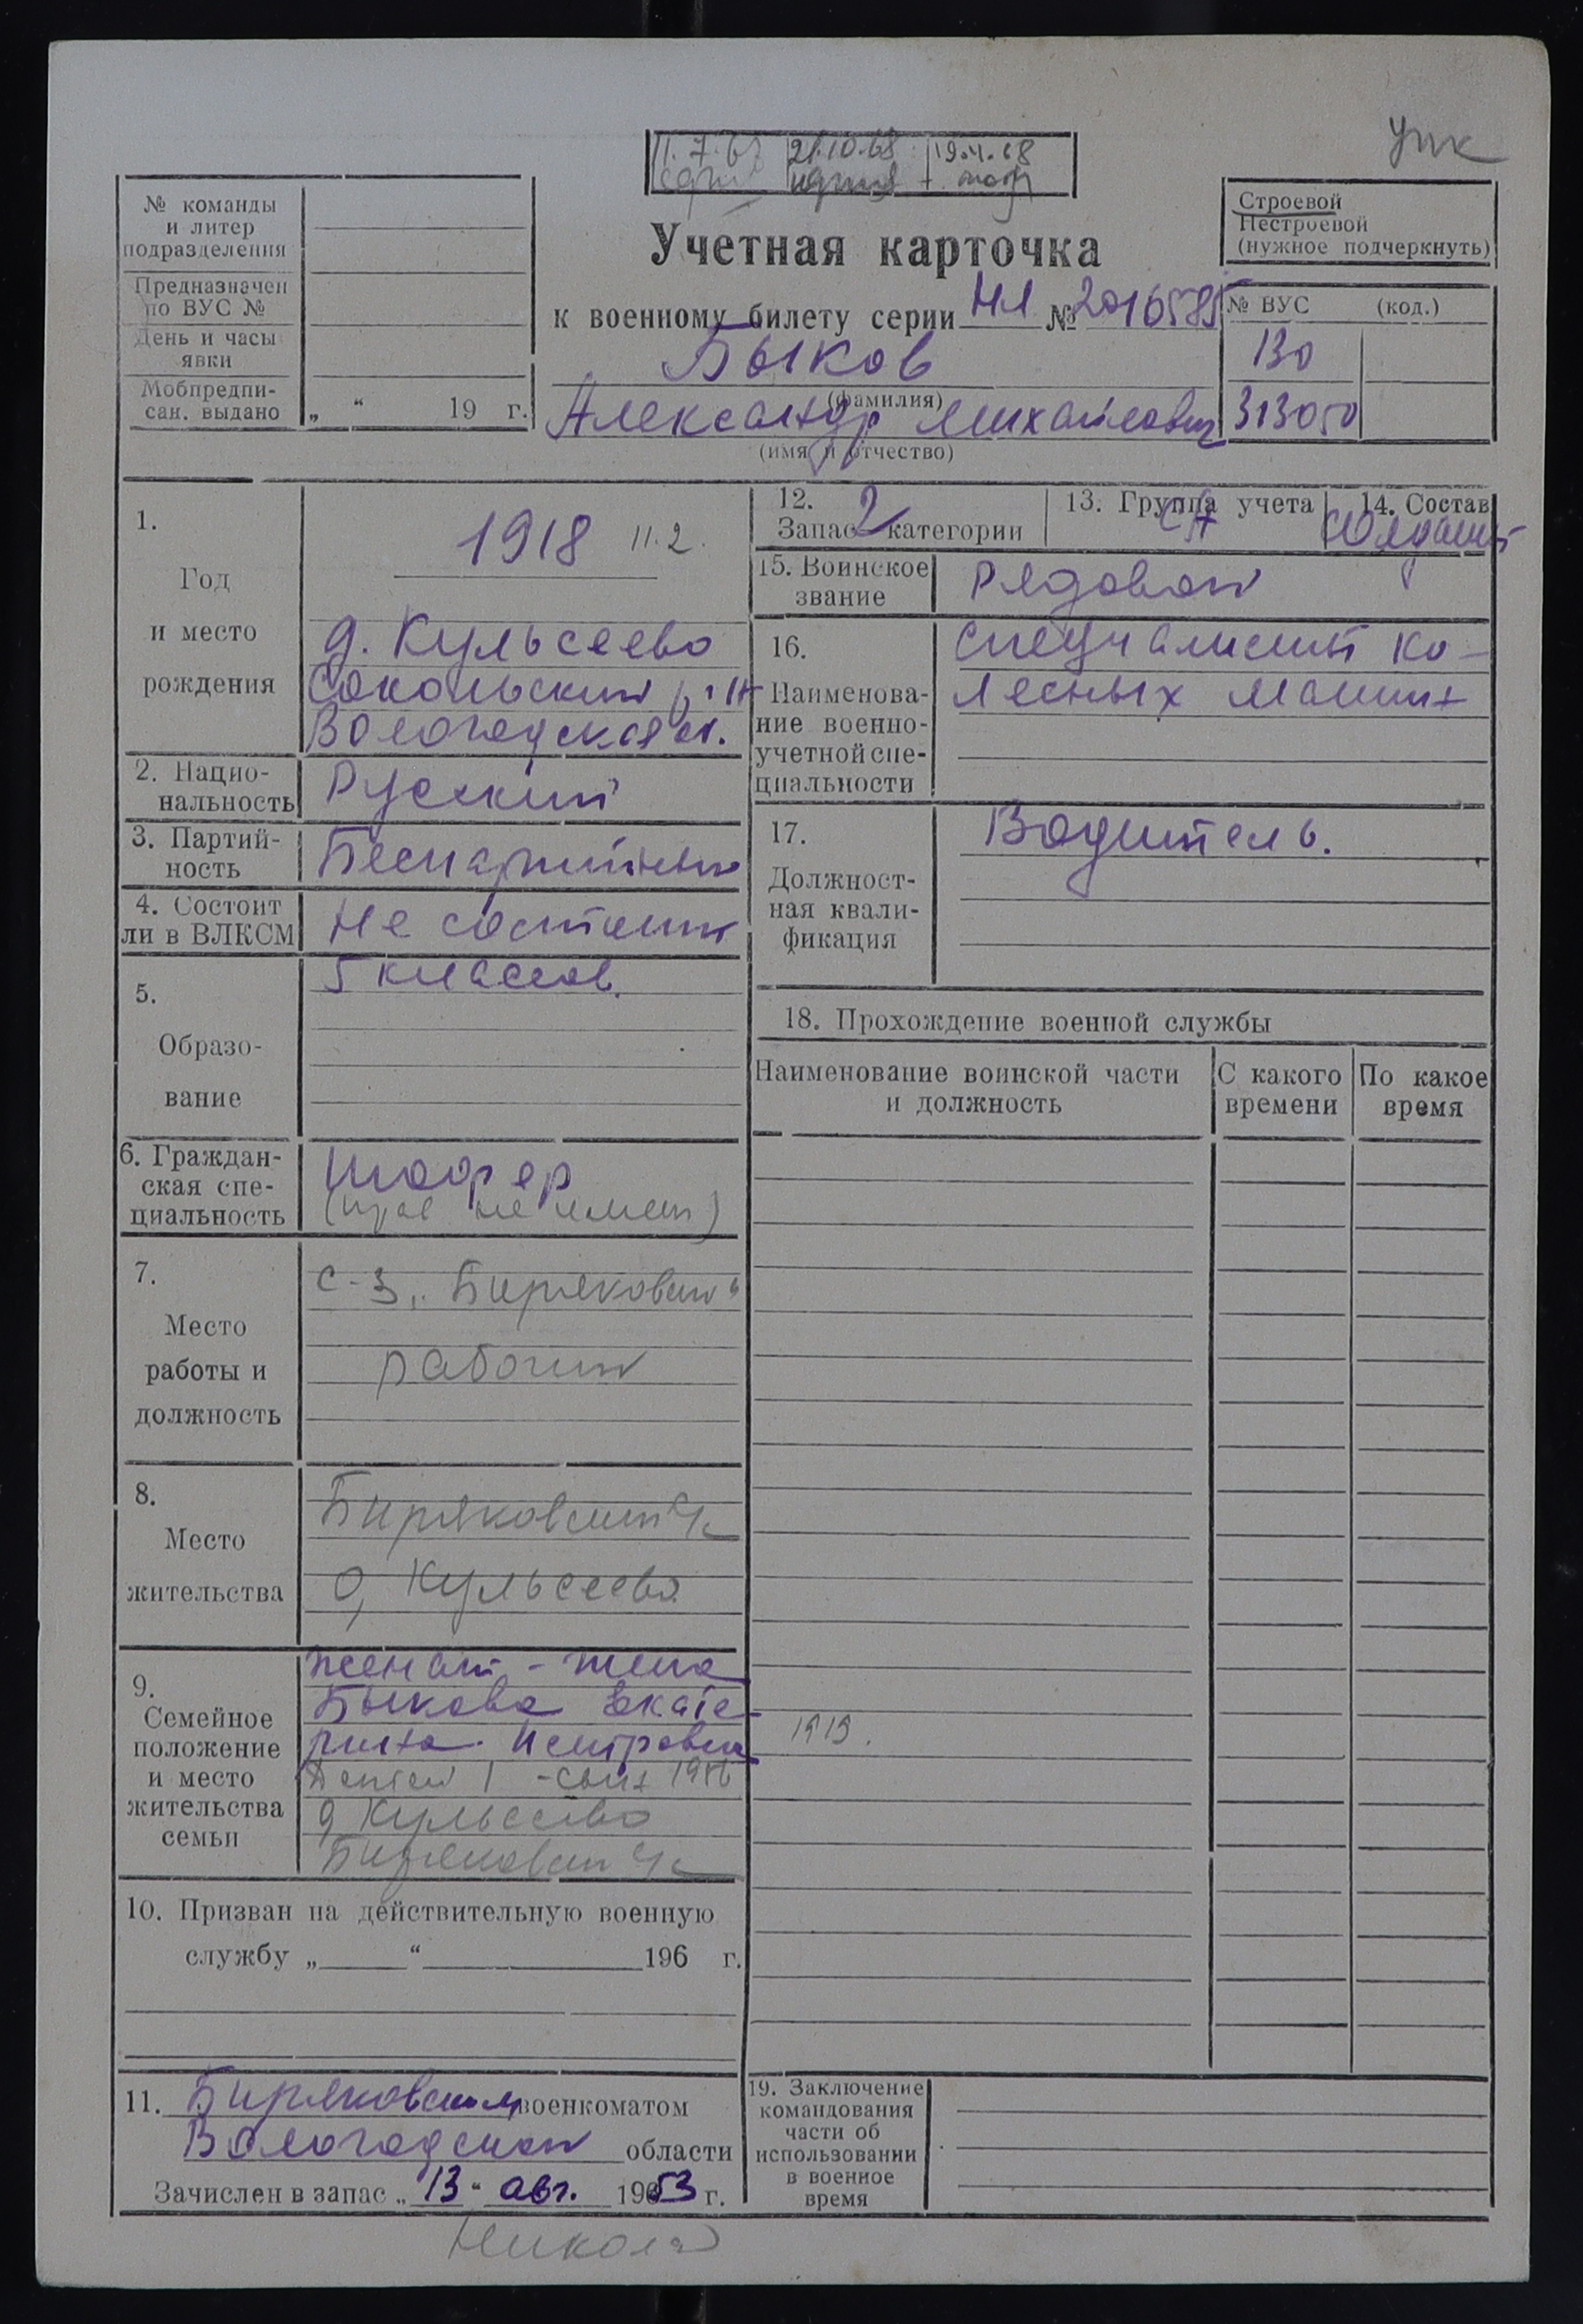 упк
11.7.67 21.10.68 19.4.68
Строевой
Нестроевой
(нужное подчеркнуть)
№ команды
и литер
подразделения
Предназначен
по ВУС №
День и часы
явки
Мобпредпи-
сан. выдано „ “ 19 г.
Учетная карточка
к военному билету серии НЛ № 2016585
Быков
(фамилия)
Александр Михайлович
(имя и отчество)
№ ВУС (код.)
130
313050
1.
Год
и место
рождения
1918 11.2.
д. Кульсеево
Сокольский р-н
Вологодская обл.
2. Нацио-
нальность
Русский
3. Партий-
ность
Беспартийный
4. Состоит
ли в ВЛКСМ
Не состоит
5.
Образо-
вание
5 классов.
6. Граждан-
ская спе-
циальность
Шофер
(прав не имеет)
7.
Место
работы и
должность
с-з „Биряковский“
рабочий
8.
Место
жительства
Биряковский с/с
д. Кульсеево
9.
Семейное
положение
и место
жительства
семьи
женат - жена
Быкова Екате-
рина Петровна 1919.
Детей 1 - сын 1956
д Кульсеево
Биряковский с/с
10. Призван на действительную военную
службу „ “ 196 г.
11. Биряковским военкоматом
Вологодской области
Зачислен в запас „13“ авг. 1953 г.
12.
Запас 2 категории
13. Группа учета
СА
14. Состав
Солдаты
15. Воинское
звание
Рядовой
16.
Наименова-
ние военно-
учетной спе-
циальности
Специалист ко-
лесных машин
17.
Должност-
ная квали-
фикация
Водитель.
18. Прохождение военной службы
Наименование воинской части
и должность
С какого
времени
По какое
время
19. Заключение
командования
части об
использовании
в военное
время